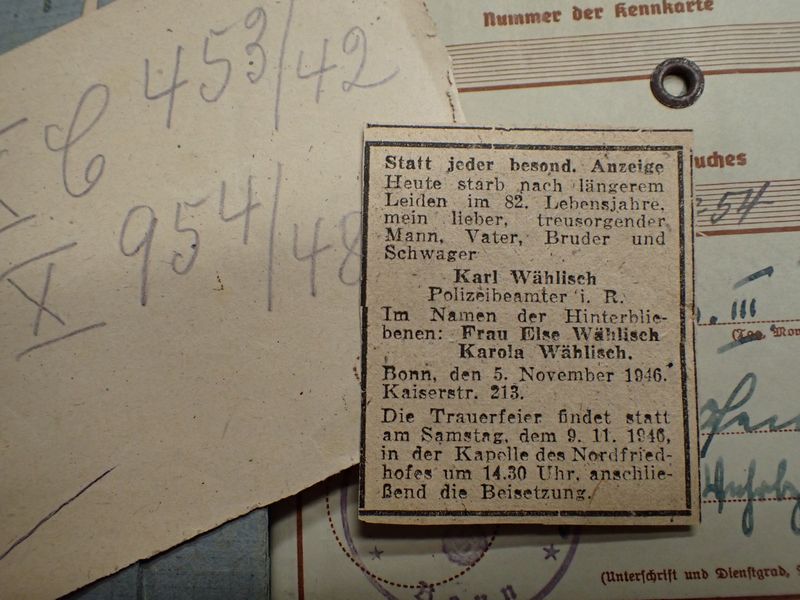 Nummer der Kennkarte
C 453/42
X 954/48
uches
54
III
Statt jeder besond. Anzeige
Heute starb nach längerem
Leiden im 82. Lebensjahre,
mein lieber, treusorgender
Mann, Vater, Bruder und
Schwager
Karl Wählisch
Polizeibeamter i. R.
Im Namen der Hinterblie-
benen: Frau Else Wählisch
Karola Wählisch.
Bonn, den 5. November 1946.
Kaiserstr. 213.
Die Trauerfeier findet statt
am Samstag, dem 9. 11. 1946,
in der Kapelle des Nordfried-
hofes um 14.30 Uhr, anschlie-
ßend die Beisetzung.
Bonn
(Unterschrift und Dienstgrad,